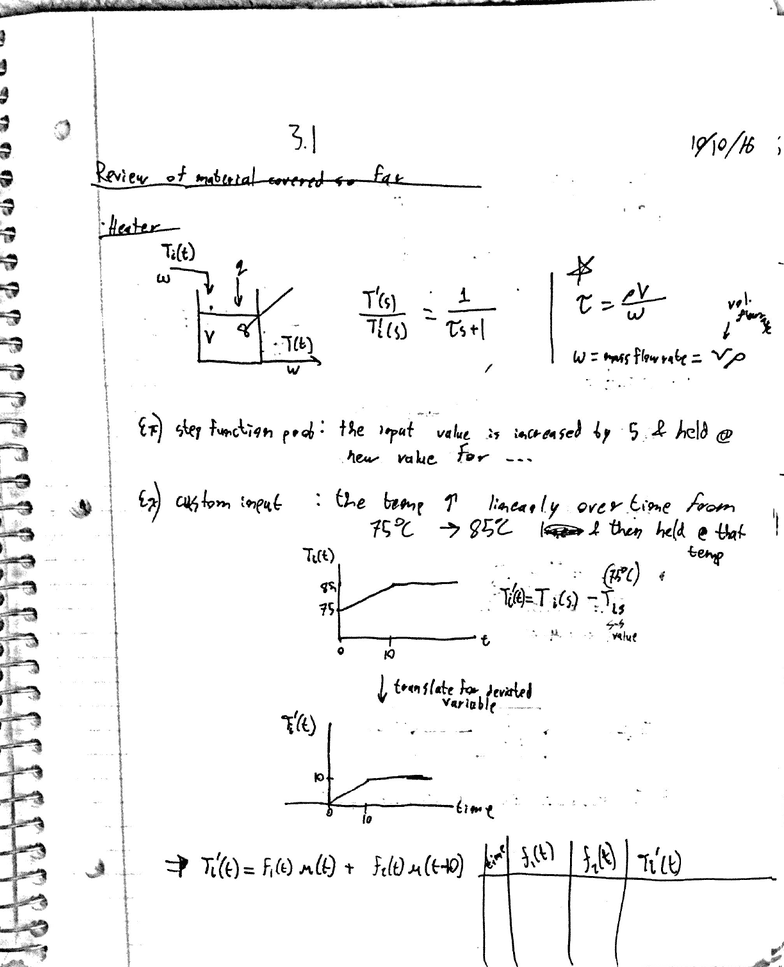 3.1
10/10/16
Review of material covered so far
Heater
Ti(t)
w
q
V
T(t)
w
T'(s)/Ti'(s) = 1/(τs+1)
τ = ρV/w
vol. flow rate
w = mass flow rate = vρ
Ex) step function prob: the input value is increased by 5 & held @
new value for ---
Ex) custom input : the temp ↑ linearly over time from
75°C → 85°C & then held @ that
temp
Ti(t)
85
75
0
10
t
(75°C)
Ti'(t) = Ti(s) - Tis
s-s
value
↓ translate for deviated
variable
Ti'(t)
10
0
10
time
⇒ Ti'(t) = f1(t) u(t) + f2(t) u(t-10)
time f1(t) f2(t) Ti'(t)